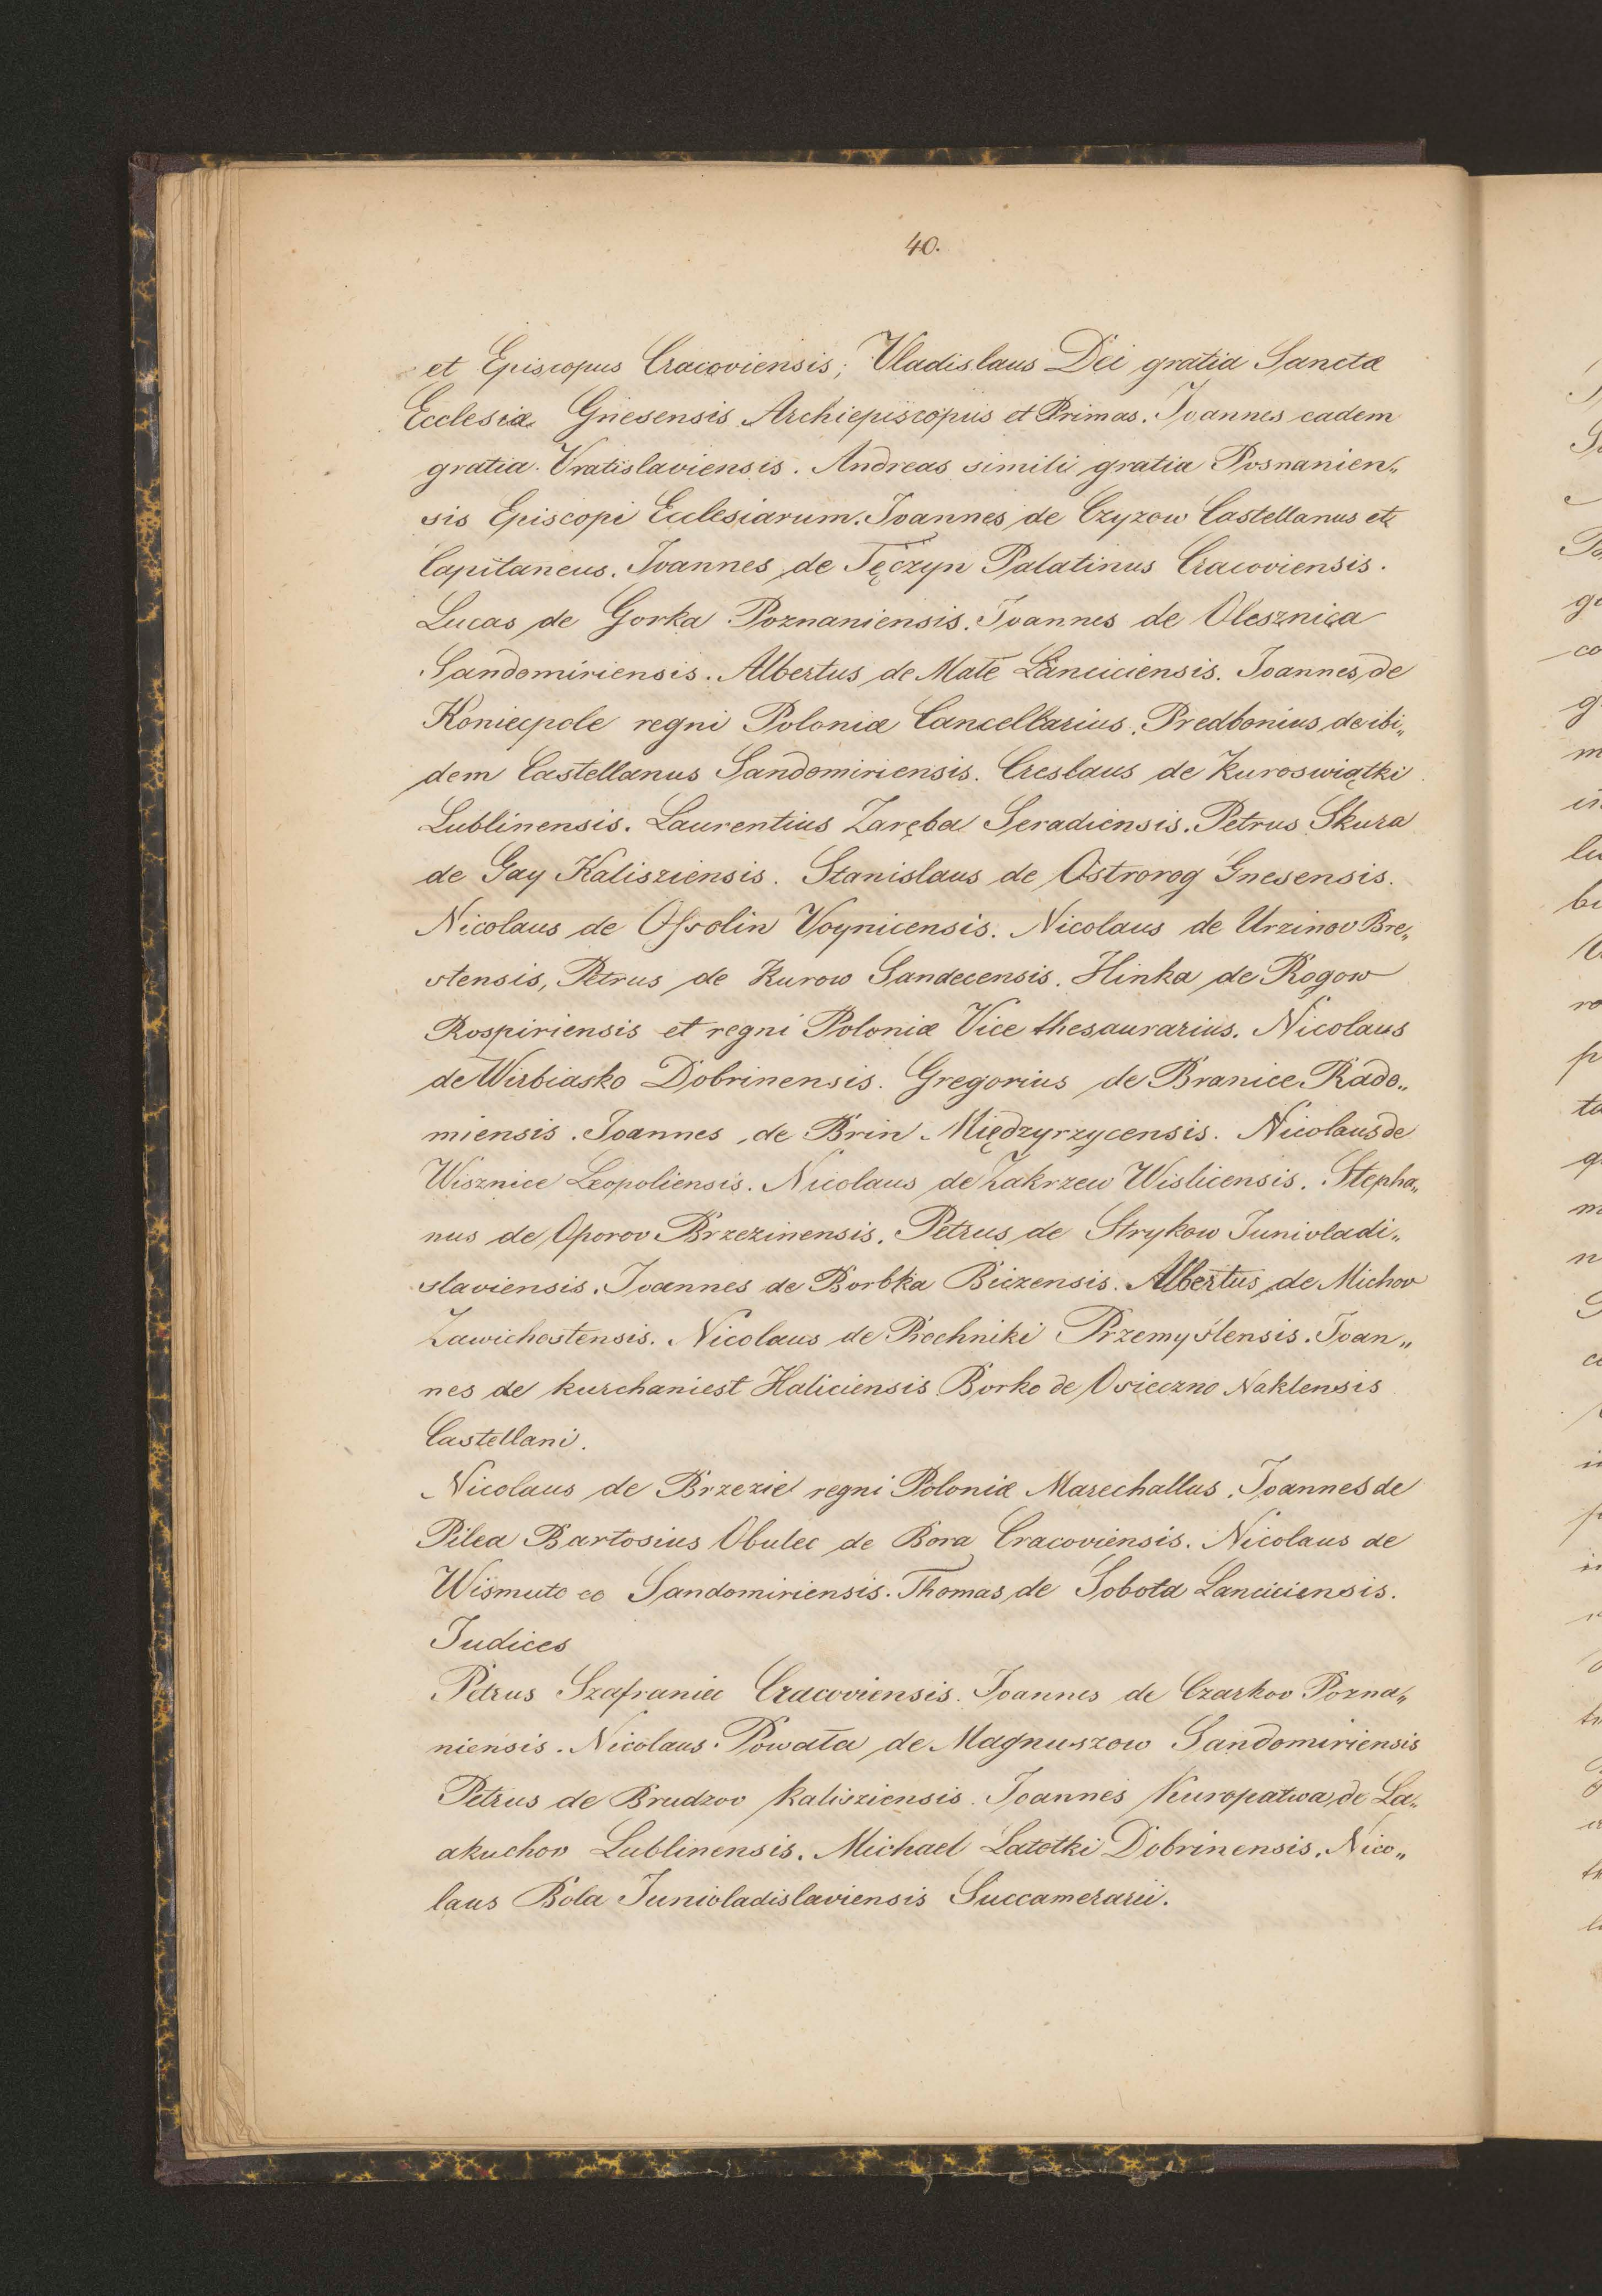 40.
et Episcopus Cracoviensis; Vladislaus Dei gratia Sanctæ
Ecclesiæ Gnesensis Archiepiscopus et Primas. Joannes eadem
gratia Vratislaviensis. Andreas simili gratia Posnanien„
sis Episcopi Ecclesiarum. Joannes de Czyzow Castellanus et
Capitaneus. Joannes de Tęczyn Palatinus Cracoviensis.
Lucas de Gorka Poznaniensis. Joannes de Olesznica
Sandomiriensis. Albertus de Małe Lanciciensis. Joannes de
Koniecpole regni Poloniæ Cancellarius. Predbonius de ibi„
dem Castellanus Sandomiriensis. Creslaus de Kuroswiątki
Lublinensis. Laurentius Zaręba Seradiensis. Petrus Skura
de Gay Kalisziensis. Stanislaus de Ostrorog Gnesensis.
Nicolaus de Ossolin Voynicensis. Nicolaus de Urzinov Bre„
stensis, Petrus de Kurow Sandecensis. Hinka de Rogow
Rospiriensis et regni Poloniæ Vice thesaurarius. Nicolaus
de Wirbiasko Dobrinensis. Gregorius de Branice Rado„
miensis. Joannes de Brin Międzyrzycensis. Nicolaus de
Wisznice Leopoliensis. Nicolaus de Zakrzew Wislicensis. Stepha„
nus de Oporov Brzezinensis. Petrus de Strykow Junivladi„
slaviensis. Joannes de Borbka Biczensis. Albertus de Michov
Zawichostensis. Nicolaus de Prochniki Przemyslensis. Joan„
nes de kurchaniest Haliciensis Borko de Osieczno Naklensis
Castellani.
Nicolaus de Brzezie regni Poloniæ Marechallus. Joannes de
Pilea Bartosius Obulec de Bora Cracoviensis. Nicolaus de
Wismutc co Sandomiriensis. Thomas de Sobota Lanciciensis.
Judices
Petrus Szafraniec Cracoviensis. Joannes de Czarkov Pozna„
niensis. Nicolaus Powała de Magnuszow Sandomiriensis
Petrus de Brudzov Kalisziensis. Joannes Kuropatwa de La„
akuchov Lublinensis. Michael Latotki Dobrinensis. Nico„
laus Bola Junioladislaviensis Succamerarii.